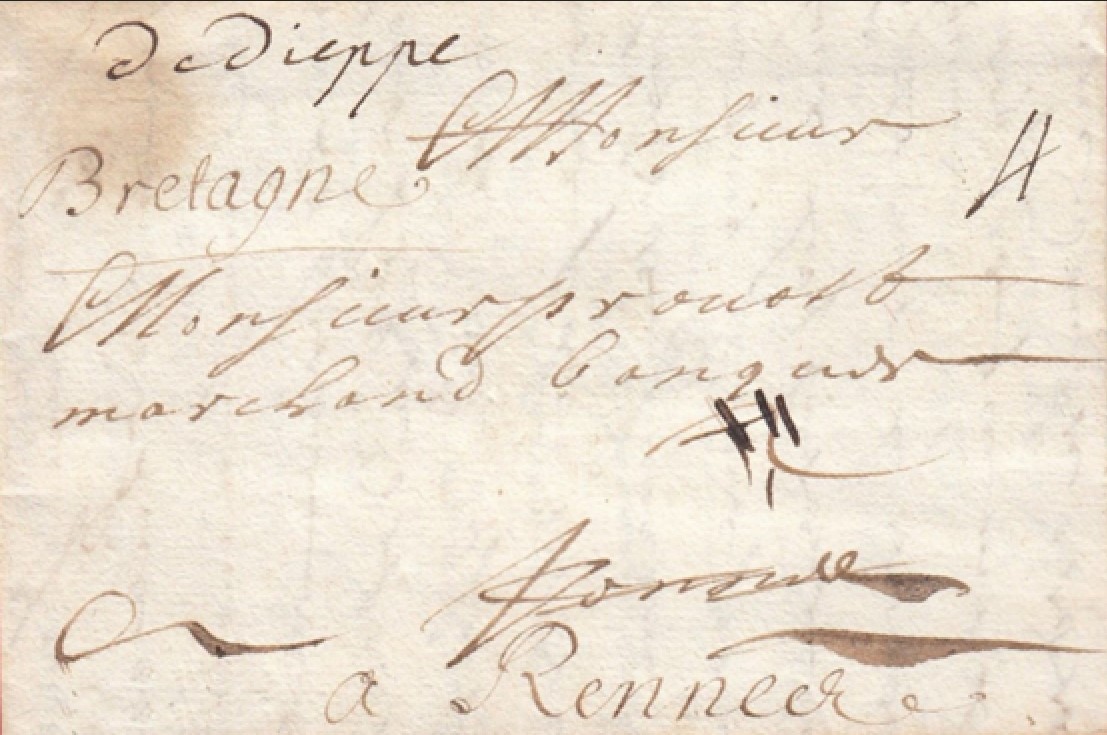 de dieppe
Monsieur
4
Bretagne
Monsieur prouost
marchand banquier
a
a Rennes